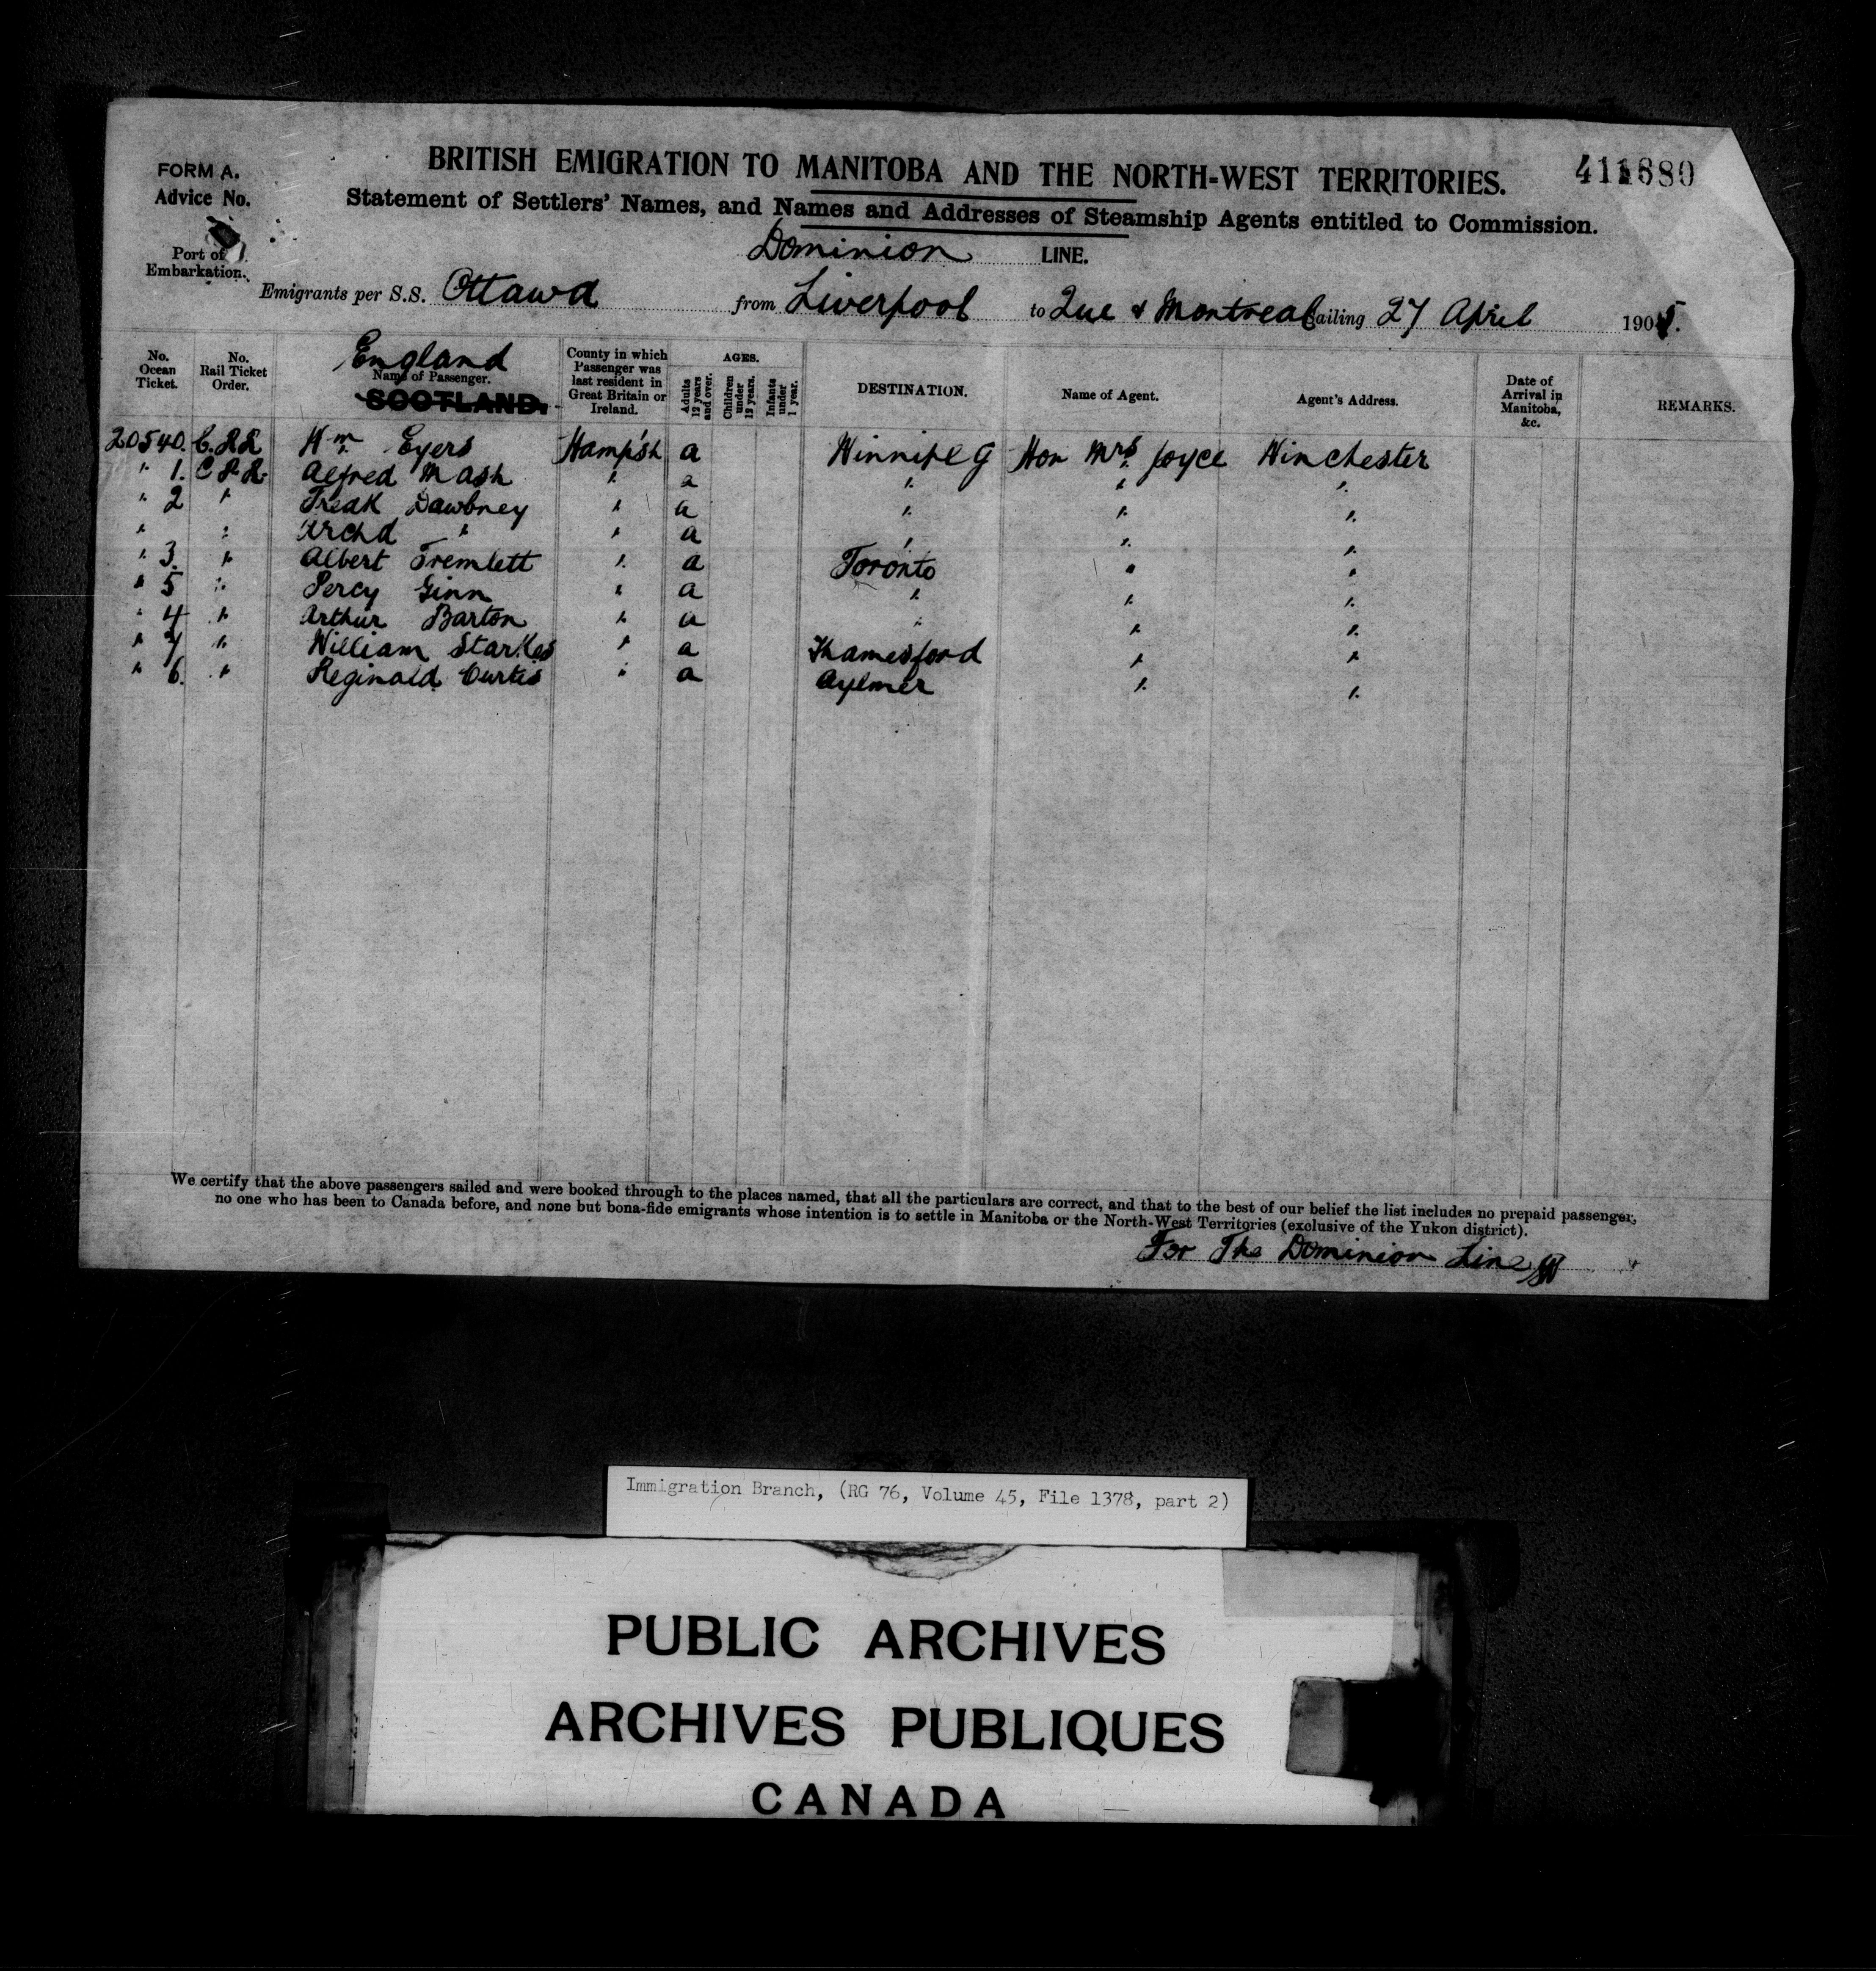 FORM A.
Advice No.
Port of
Embarkation.
BRITISH EMIGRATION TO MANITOBA AND THE NORTH-WEST TERRITORIES.
411680
Statement of Settlers' Names, and Names and Addresses of Steamship Agents entitled to Commission.
Dominion LINE.
Emigrants per S.S. Ottawa from Liverpool to Que & Montreal Sailing 27 April 1905.
No. Ocean Ticket. No. Rail Ticket Order. England Name of Passenger. SCOTLAND. County in which Passenger was last resident in Great Britain or Ireland. AGES. Adults 12 years and over. Children under 12 years. Infants under 1 year. DESTINATION. Name of Agent. Agent's Address. Date of Arrival in Manitoba, &c. REMARKS.
20540. C.P.R. Wm Eyers Hamp'sh a Winnipeg Hon Mrs Joyce Winchester
" 1. C.P.R. Alfred Mash " a " " "
" 2 " Freak Dawbney " a " " "
" " Archd " " a " " "
" 3. " Albert Tremlett " a Toronto " "
" 5 " Percy Ginn " a " " "
" 4 " Arthur Barton " a " " "
" 7 " William Starkes " a Thamesford " "
" 6. " Reginald Curtis " a Aylmer " "
We certify that the above passengers sailed and were booked through to the places named, that all the particulars are correct, and that to the best of our belief the list includes no prepaid passenger,
no one who has been to Canada before, and none but bona-fide emigrants whose intention is to settle in Manitoba or the North-West Territories (exclusive of the Yukon district).
For The Dominion Line
Immigration Branch, (RG 76, Volume 45, File 1378, part 2)
PUBLIC ARCHIVES
ARCHIVES PUBLIQUES
CANADA